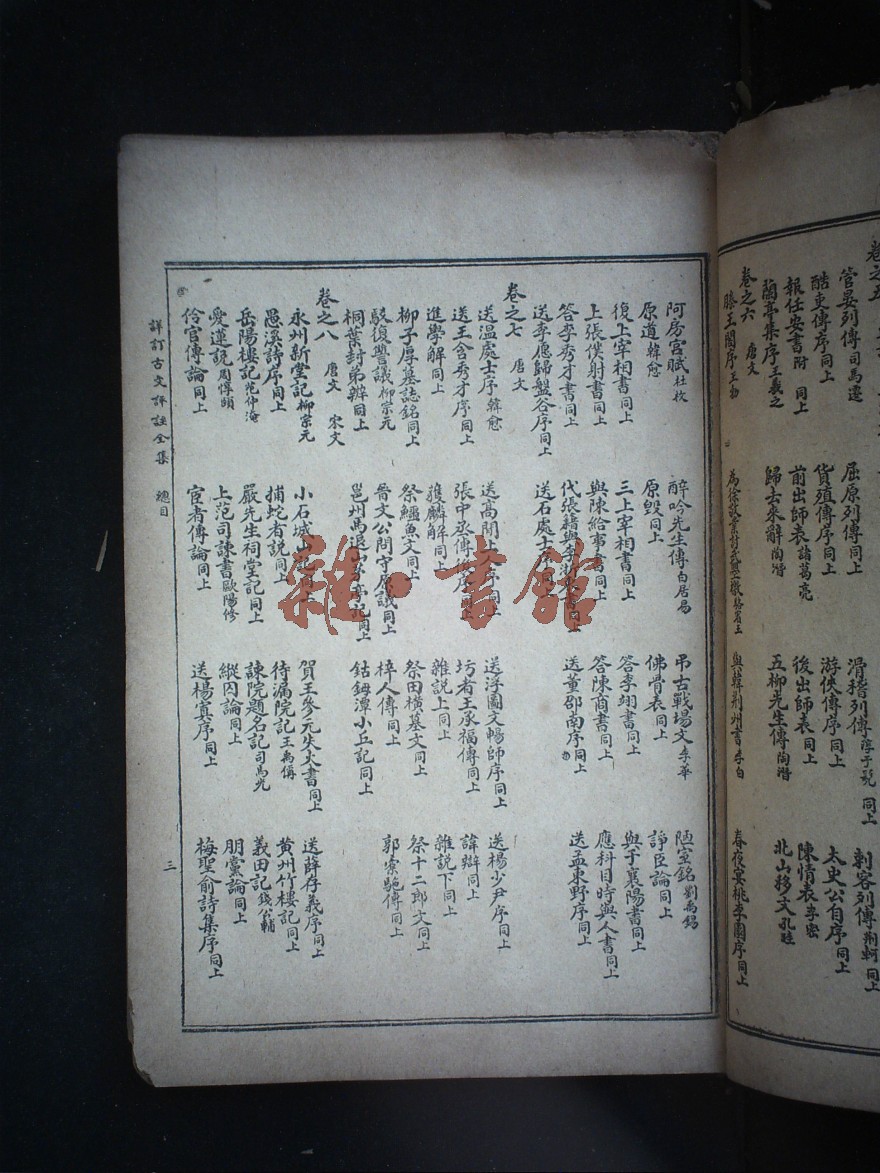 卷之五
管晏列傳司馬遷 屈原列傳同上 滑稽列傳淳于髡 同上 刺客列傳荊軻 同上
酷吏傳序同上 貨殖傳序同上 游俠傳序同上 太史公自序同上
報任安書附 同上 前出師表諸葛亮 後出師表同上 陳情表李密
蘭亭集序王羲之 歸去來辭陶潛 五柳先生傳陶潛 北山移文孔
卷之六 唐文
滕王閣序王勃 為徐敬業討武曌檄駱賓王 與韓荊州書李白 春夜宴桃李園序同上
阿房宮賦杜牧 醉吟先生傳白居易 弔古戰場文李華 陋室銘劉禹錫
原道韓愈 原毀同上 佛骨表同上 諍臣論同上
復上宰相書同上 三上宰相書同上 答李翊書同上 與于襄陽書同上
上張僕射書同上 與陳給事書同上 答陳商書同上 應科目時與人書同上
答李秀才書同上 代張籍與李浙東書同上 送董邵南序同上 送孟東野序同上
送李愿歸盤谷序同上 送石處士序同上
卷之七 唐文
送溫處士序韓愈 送高閑上人序同上 送浮圖文暢師序同上 送楊少尹序同上
送王含秀才序同上 張中丞傳後序同上 圬者王承福傳同上 諱辯同上
進學解同上 獲麟解同上 雜說上同上 雜說下同上
柳子厚墓誌銘同上 祭鱷魚文同上 祭田橫墓文同上 祭十二郎文同上
駁復讐議柳宗元 晉文公問守原議同上 梓人傳同上 郭橐駝傳同上
桐葉封弟辯同上 邕州馬退山茅亭記同上 鈷鉧潭小丘記同上
卷之八 唐文 宋文
永州新堂記柳宗元 小石城山記同上 賀王參元失火書同上 送薛存義序同上
愚溪詩序同上 捕蛇者說同上 待漏院記王禹偁 黃州竹樓記同上
岳陽樓記范仲淹 嚴先生祠堂記同上 諫院題名記司馬光 義田記錢公輔
愛蓮說周惇頤 上范司諫書歐陽修 縱囚論同上 朋黨論同上
伶官傳論同上 宦者傳論同上 送楊寘序同上 梅聖俞詩集序同上
詳訂古文評註全集 總目 三
雜·書館